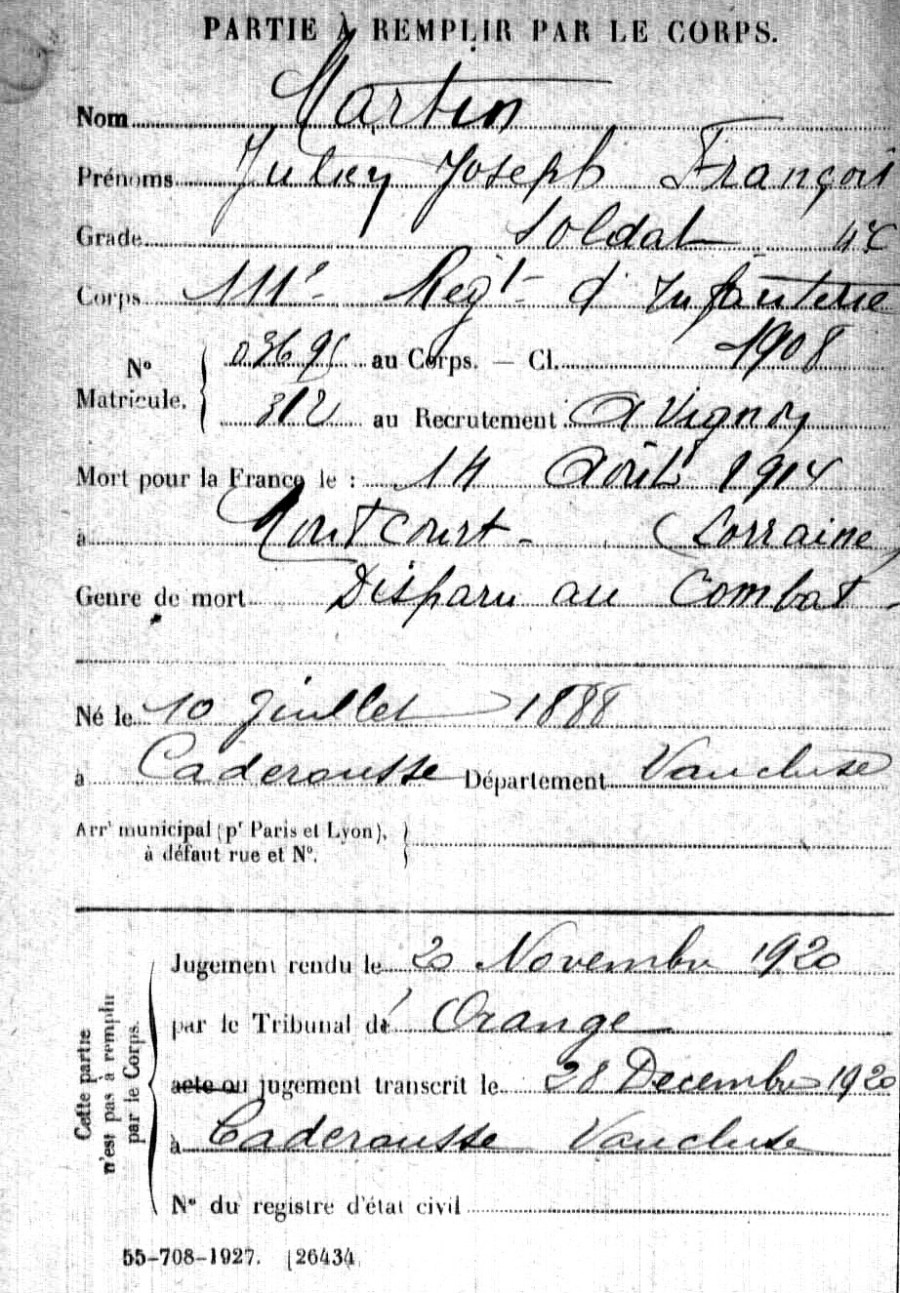 PARTIE À REMPLIR PAR LE CORPS.
Nom Martin
Prénoms Joseph François
Grade Soldat
Corps 111e Regt d'Infanterie
No Matricule. 03695 au Corps. — Cl. 1908
312 au Recrutement Avignon
Mort pour la France le : 14 Août 1914
à Montcourt - (Lorraine)
Genre de mort Disparu au Combat -
Né le 10 Juillet 1888
à Caderousse Département Vaucluse
Arrt municipal (pr Paris et Lyon),
à défaut rue et No.
Cette partie n'est pas à remplir par le Corps.
Jugement rendu le 20 Novembre 1920
par le Tribunal de Orange
acte ou jugement transcrit le 28 Decembre 1920
à Caderousse Vaucluse
No du registre d'état civil
55-708-1927. [26434